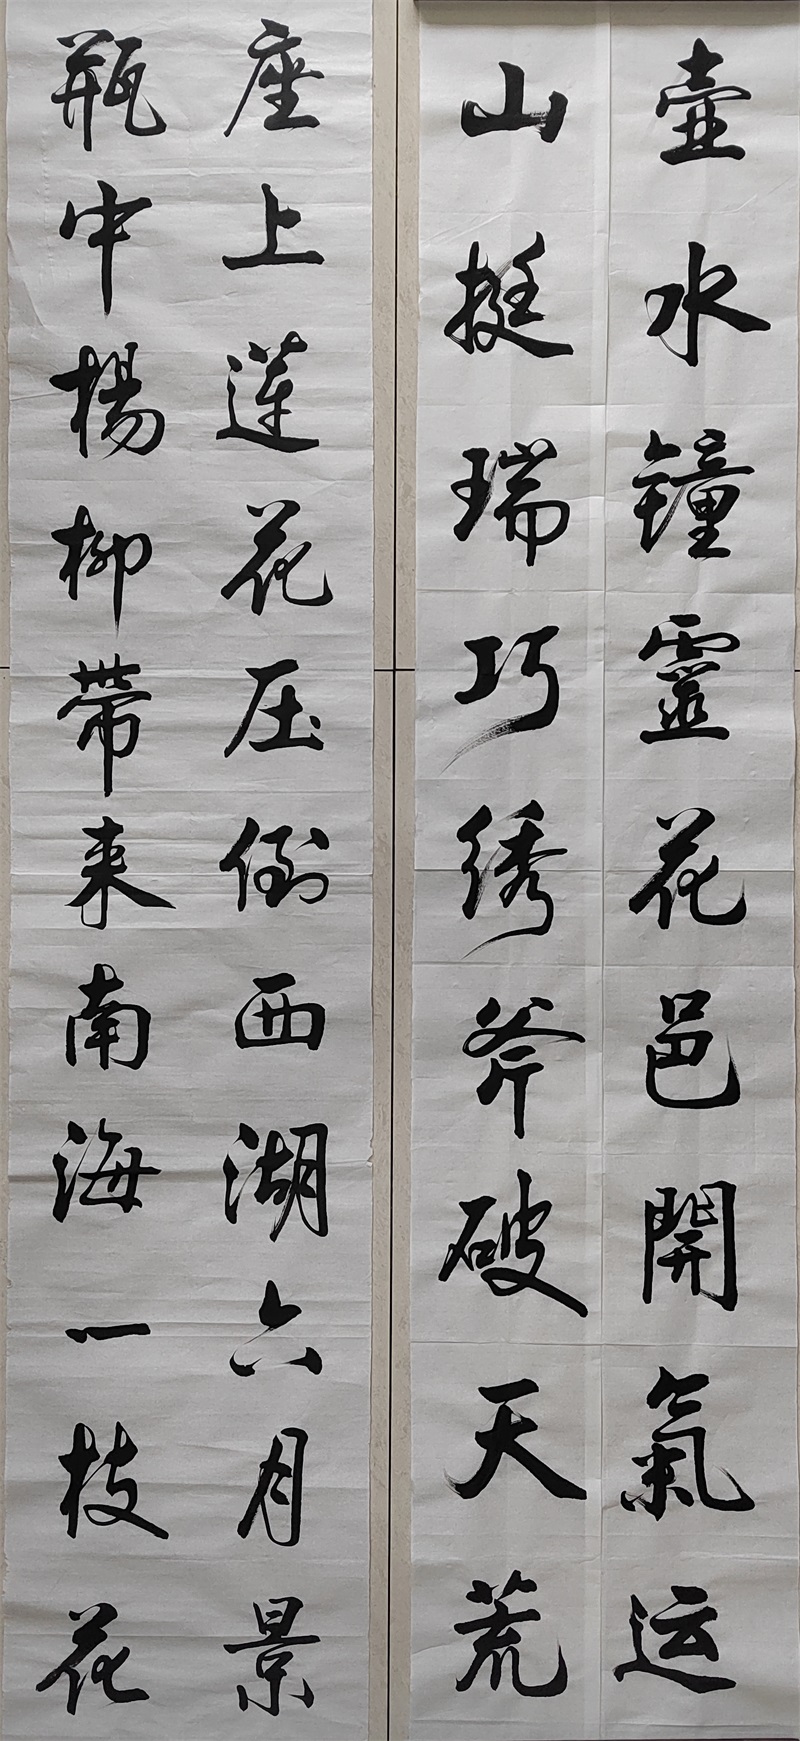 壺水鐘靈花邑開氣运
山挺瑞巧绣斧破天荒
座上莲花压倒西湖六月景
瓶中楊柳带来南海一枝花